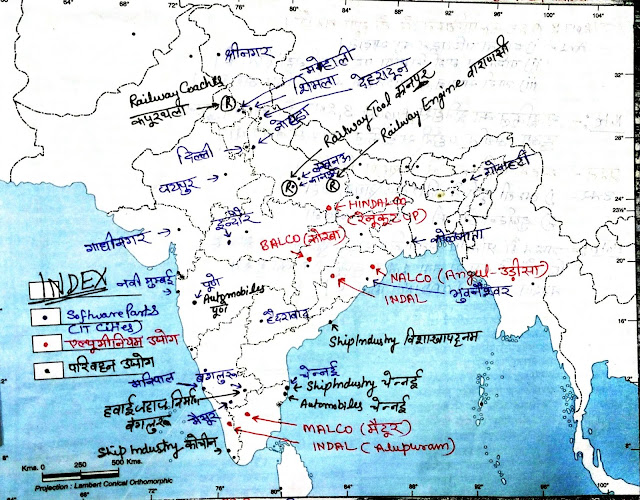 72° 76° 80° 84° 88° 92° 96° 100° 104°
श्रीनगर
मोहाली
शिमला
देहरादून
Railway Coaches
कपूरथला
R
नोएडा
Railway Tool कानपुर
Railway Engine वाराणसी
दिल्ली
लखनऊ
कानपुर
R
R
जयपुर
गोवाहटी
28°
24°
23½°
20°
16°
HINDALCO
(रेनूकूट UP)
इन्दौर
BALCO (कोरबा)
गाधीनगर
कोलकाता
INDEX
नवी मुम्बई
पुणे
Automobiles
पुणे
NALCO (Angul-उड़ीसा)
INDAL
भुवनेश्वर
Software Parks
(IT Cities)
हैदराबाद
एल्यूमीनियम उद्योग
Ship Industry विशाखापट्टनम
परिवहन उद्योग
मनिपाल
बंगलुरू
चेन्नई
Ship Industry चेन्नई
हवाई जहाज निर्माण
बंगलुरू
Automobiles चेन्नई
मैसूर
MALCO (मैटूर)
INDAL (Alupuram)
Ship Industry कोचीन
Kms. 0 250 500 Kms.
Projection : Lambert Conical Orthomorphic
76° 80° 84° 88° 92° 96°